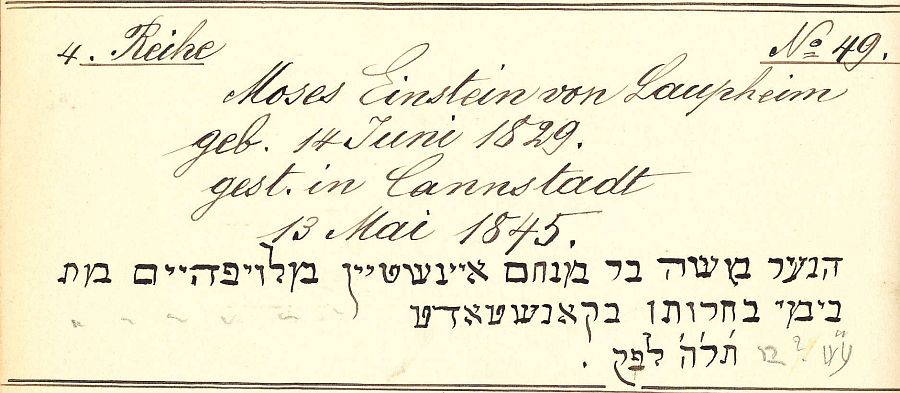 4. Reihe
No 49.
Moses Einstein von Laupheim
geb. 14 Juni 1829.
gest. in Cannstadt
13 Mai 1845.
הנער משה בר מנחם איינשטיין מלויפהיים מת
בימי בחרותו בקאנשטאדט
תר'ה' לפק .